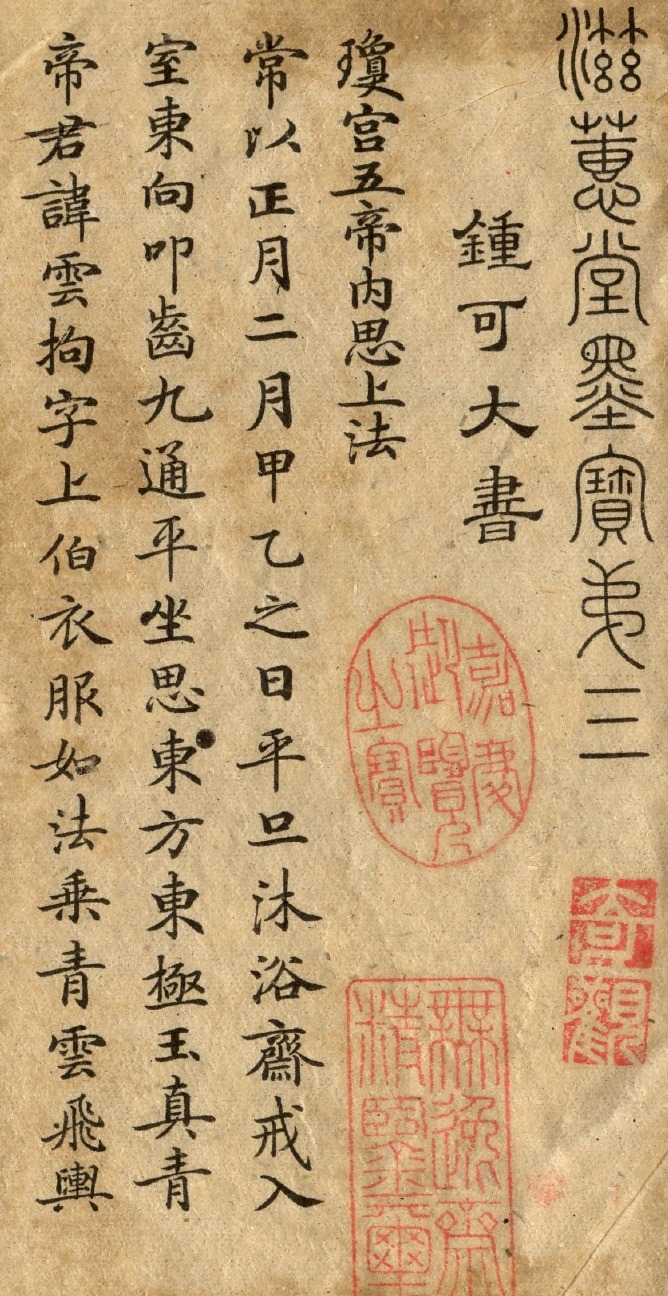 滋蕙堂墨寶弟三
奇觀
鍾可大書
嘉慶御覽之寶
無逸齋精鑒璽
瓊宮五帝內思上法
常以正月二月甲乙之日平旦沐浴齋戒入
室東向叩齒九通平坐思東方東極玉真青
帝君諱雲拘字上伯衣服如法乘青雲飛輿